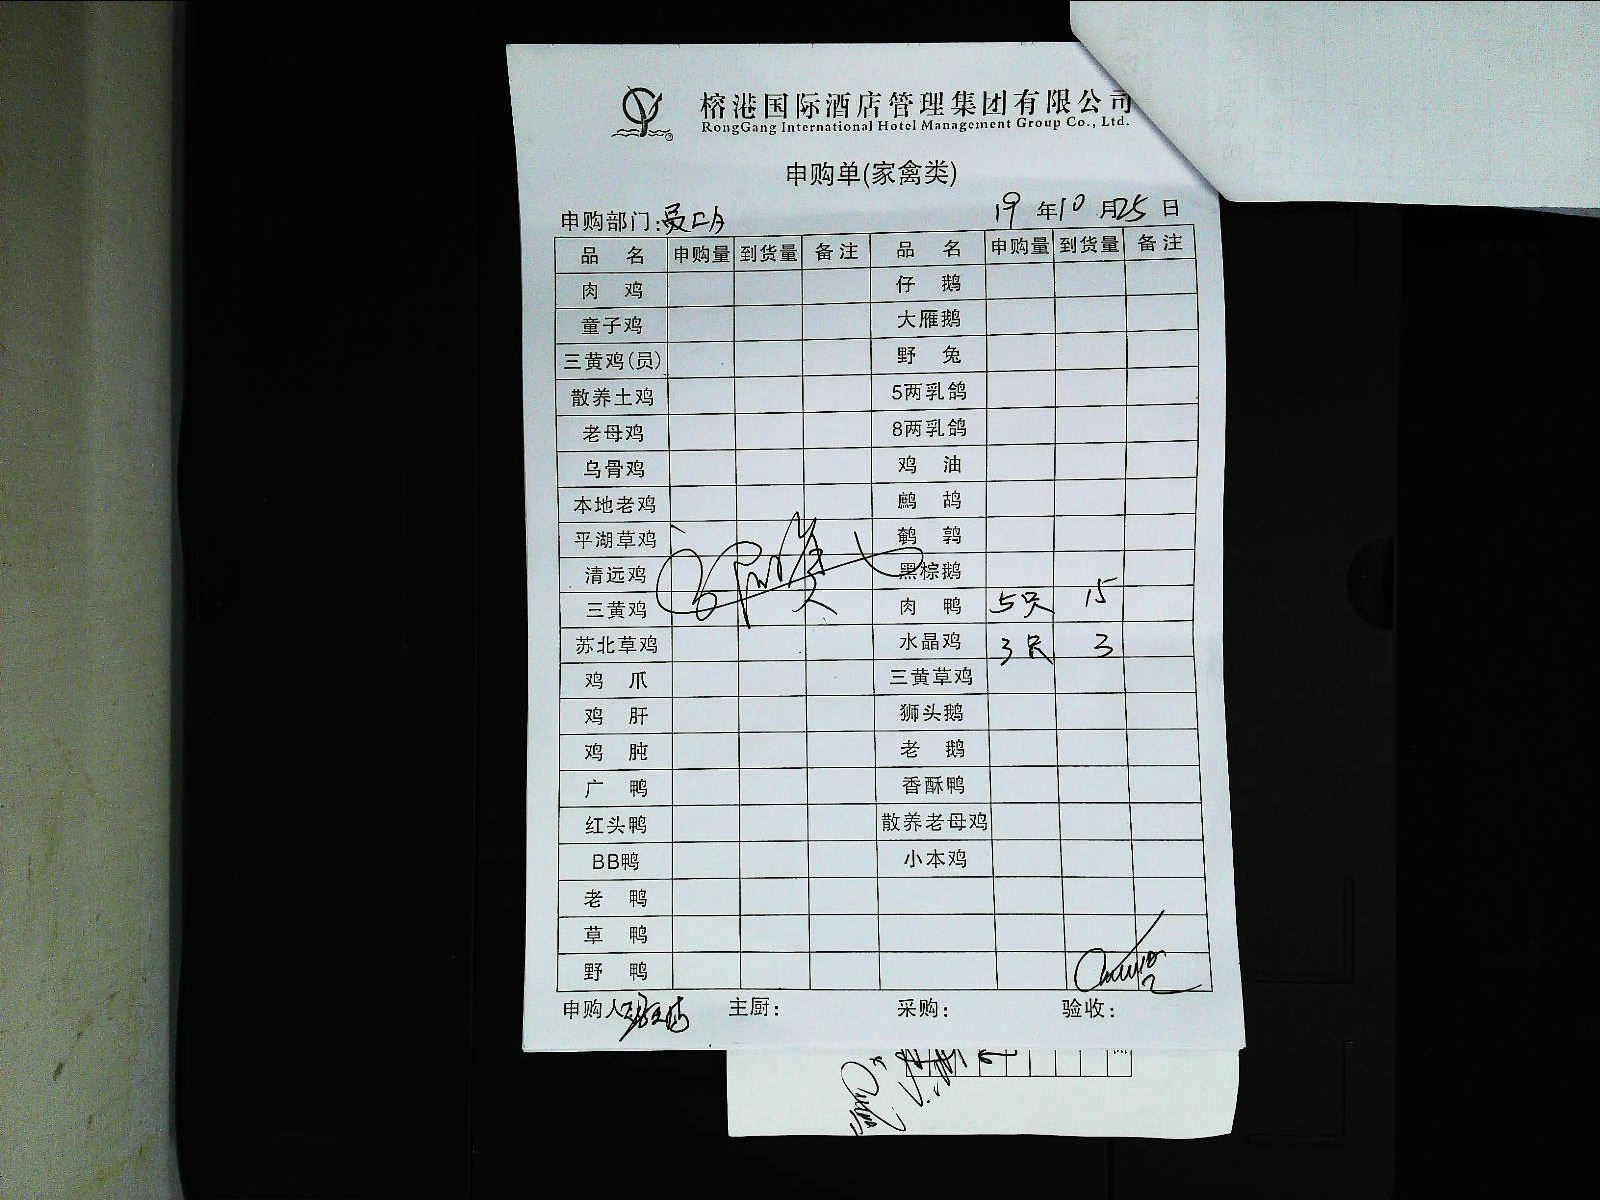 榕港国际酒店管理集团有限公司
RongGang International Hotel Management Group Co., Ltd.
申购单(家禽类)
申购部门:
19 年 10 月 25 日
品 名 申购量 到货量 备注 品 名 申购量 到货量 备注
肉 鸡 仔 鹅
童子鸡 大雁鹅
三黄鸡(员) 野 兔
散养土鸡 5两乳鸽
老母鸡 8两乳鸽
乌骨鸡 鸡 油
本地老鸡 鹧 鸪
平湖草鸡 鹌 鹑
清远鸡 黑棕鹅
三黄鸡 肉 鸭 5只 15
苏北草鸡 水晶鸡 3只 3
鸡 爪 三黄草鸡
鸡 肝 狮头鹅
鸡 肫 老 鹅
广 鸭 香酥鸭
红头鸭 散养老母鸡
BB鸭 小本鸡
老 鸭
草 鸭
野 鸭
申购人 主厨: 采购: 验收: